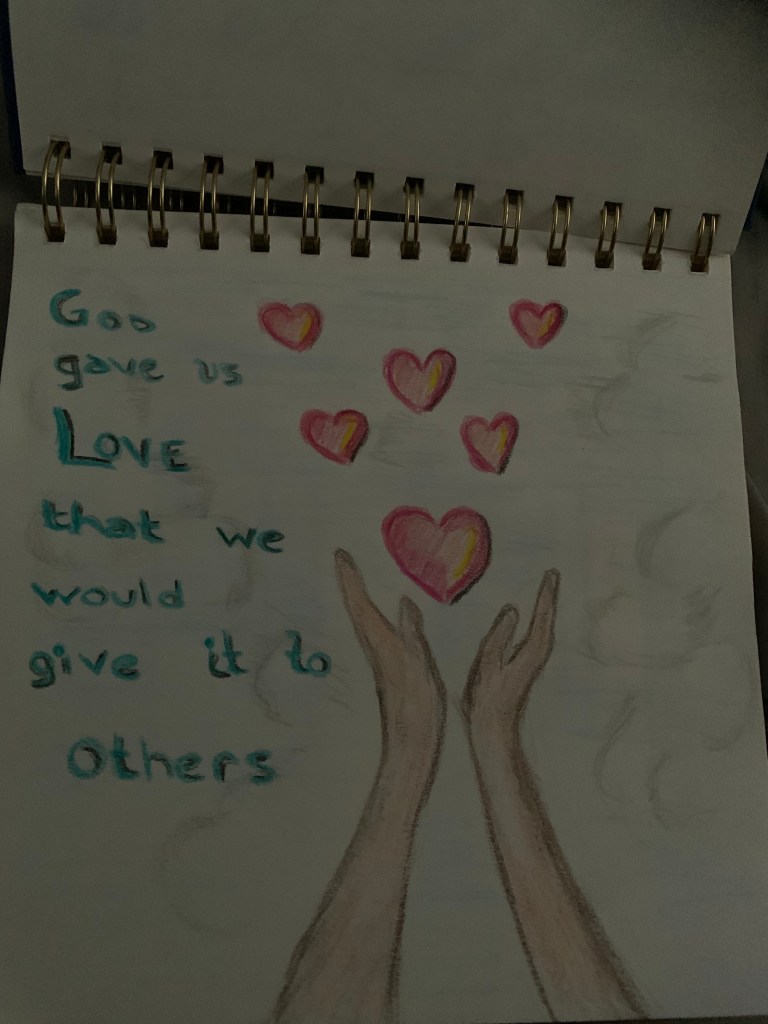 God
gave us
LOVE
that we
would
give it to
Others